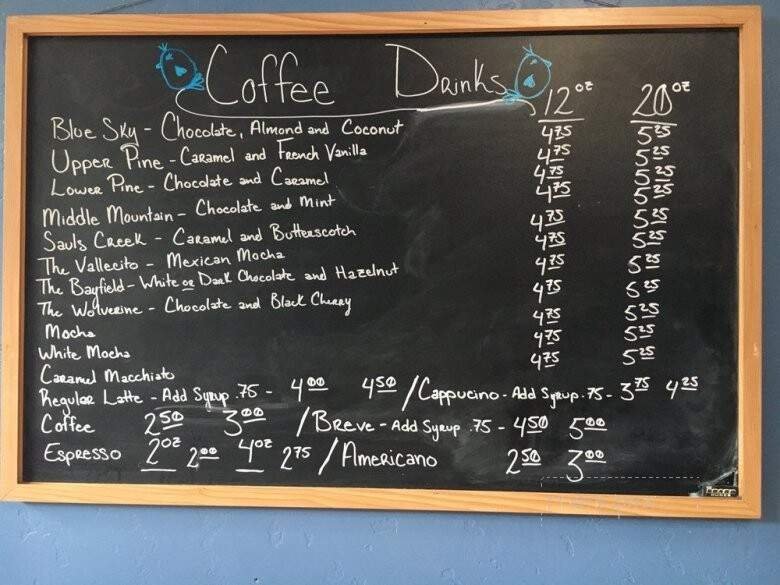 Coffee Drinks 12 oz 20 oz
Blue Sky - Chocolate, Almond and Coconut 4.75 5.25
Upper Pine - Caramel and French Vanilla 4.75 5.25
Lower Pine - Chocolate and Caramel 4.75 5.25
Middle Mountain - Chocolate and Mint 4.75 5.25
Sauls Creek - Caramel and Butterscotch 4.75 5.25
The Vallecito - Mexican Mocha 4.75 5.25
The Bayfield - White or Dark Chocolate and Hazelnut 4.75 5.25
The Wolverine - Chocolate and Black Cherry 4.75 5.25
Mocha 4.75 5.25
White Mocha 4.75 5.25
Caramel Macchiato 4.75 5.25
Regular Latte - Add Syrup .75 - 4.00 4.50 / Cappucino - Add Syrup .75 - 3.75 4.25
Coffee 2.50 3.00 / Breve - Add Syrup .75 - 4.50 5.00
Espresso 2oz 2.00 4oz 2.75 / Americano 2.50 3.00